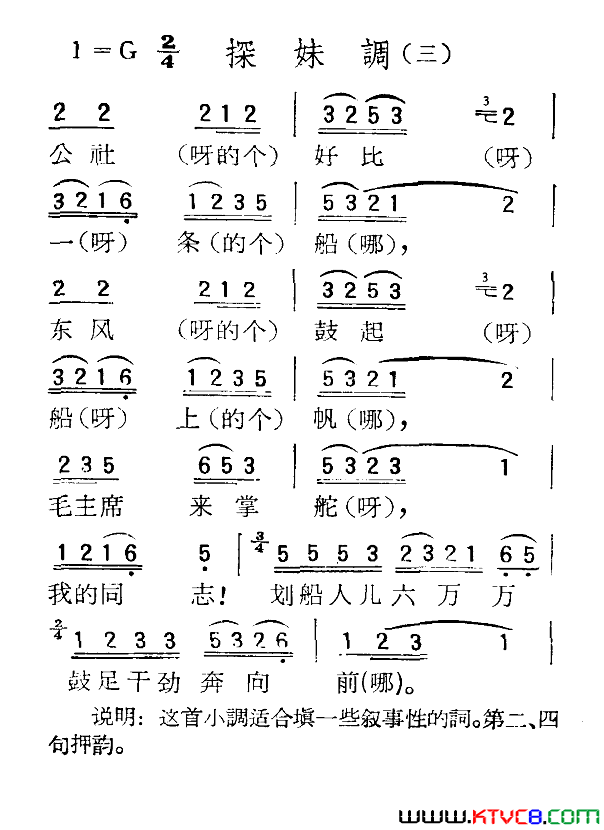 1=G 2/4 探妹調(三)
2 2 2 1 2 | 3 2 5 3 3 2 |
公社 (呀的个) 好比 (呀)
3 2 1 6 1 2 3 5 | 5 3 2 1 2 |
一(呀) 条(的个) 船(哪),
2 2 2 1 2 | 3 2 5 3 3 2 |
东风 (呀的个) 鼓起 (呀)
3 2 1 6 1 2 3 5 | 5 3 2 1 2 |
船(呀) 上(的个) 帆(哪),
2 3 5 6 5 3 | 5 3 2 3 1 |
毛主席 来掌 舵(呀),
1 2 1 6 5 | 3/4 5 5 5 3 2 3 2 1 6 5 |
我的同 志! 划船人儿六万万
2/4 1 2 3 3 5 3 2 6 | 1 2 3 1 |
鼓足干劲奔向 前(哪)。
说明: 这首小調适合填一些叙事性的詞。第二、四
句押韵。
www.KTVC8.com